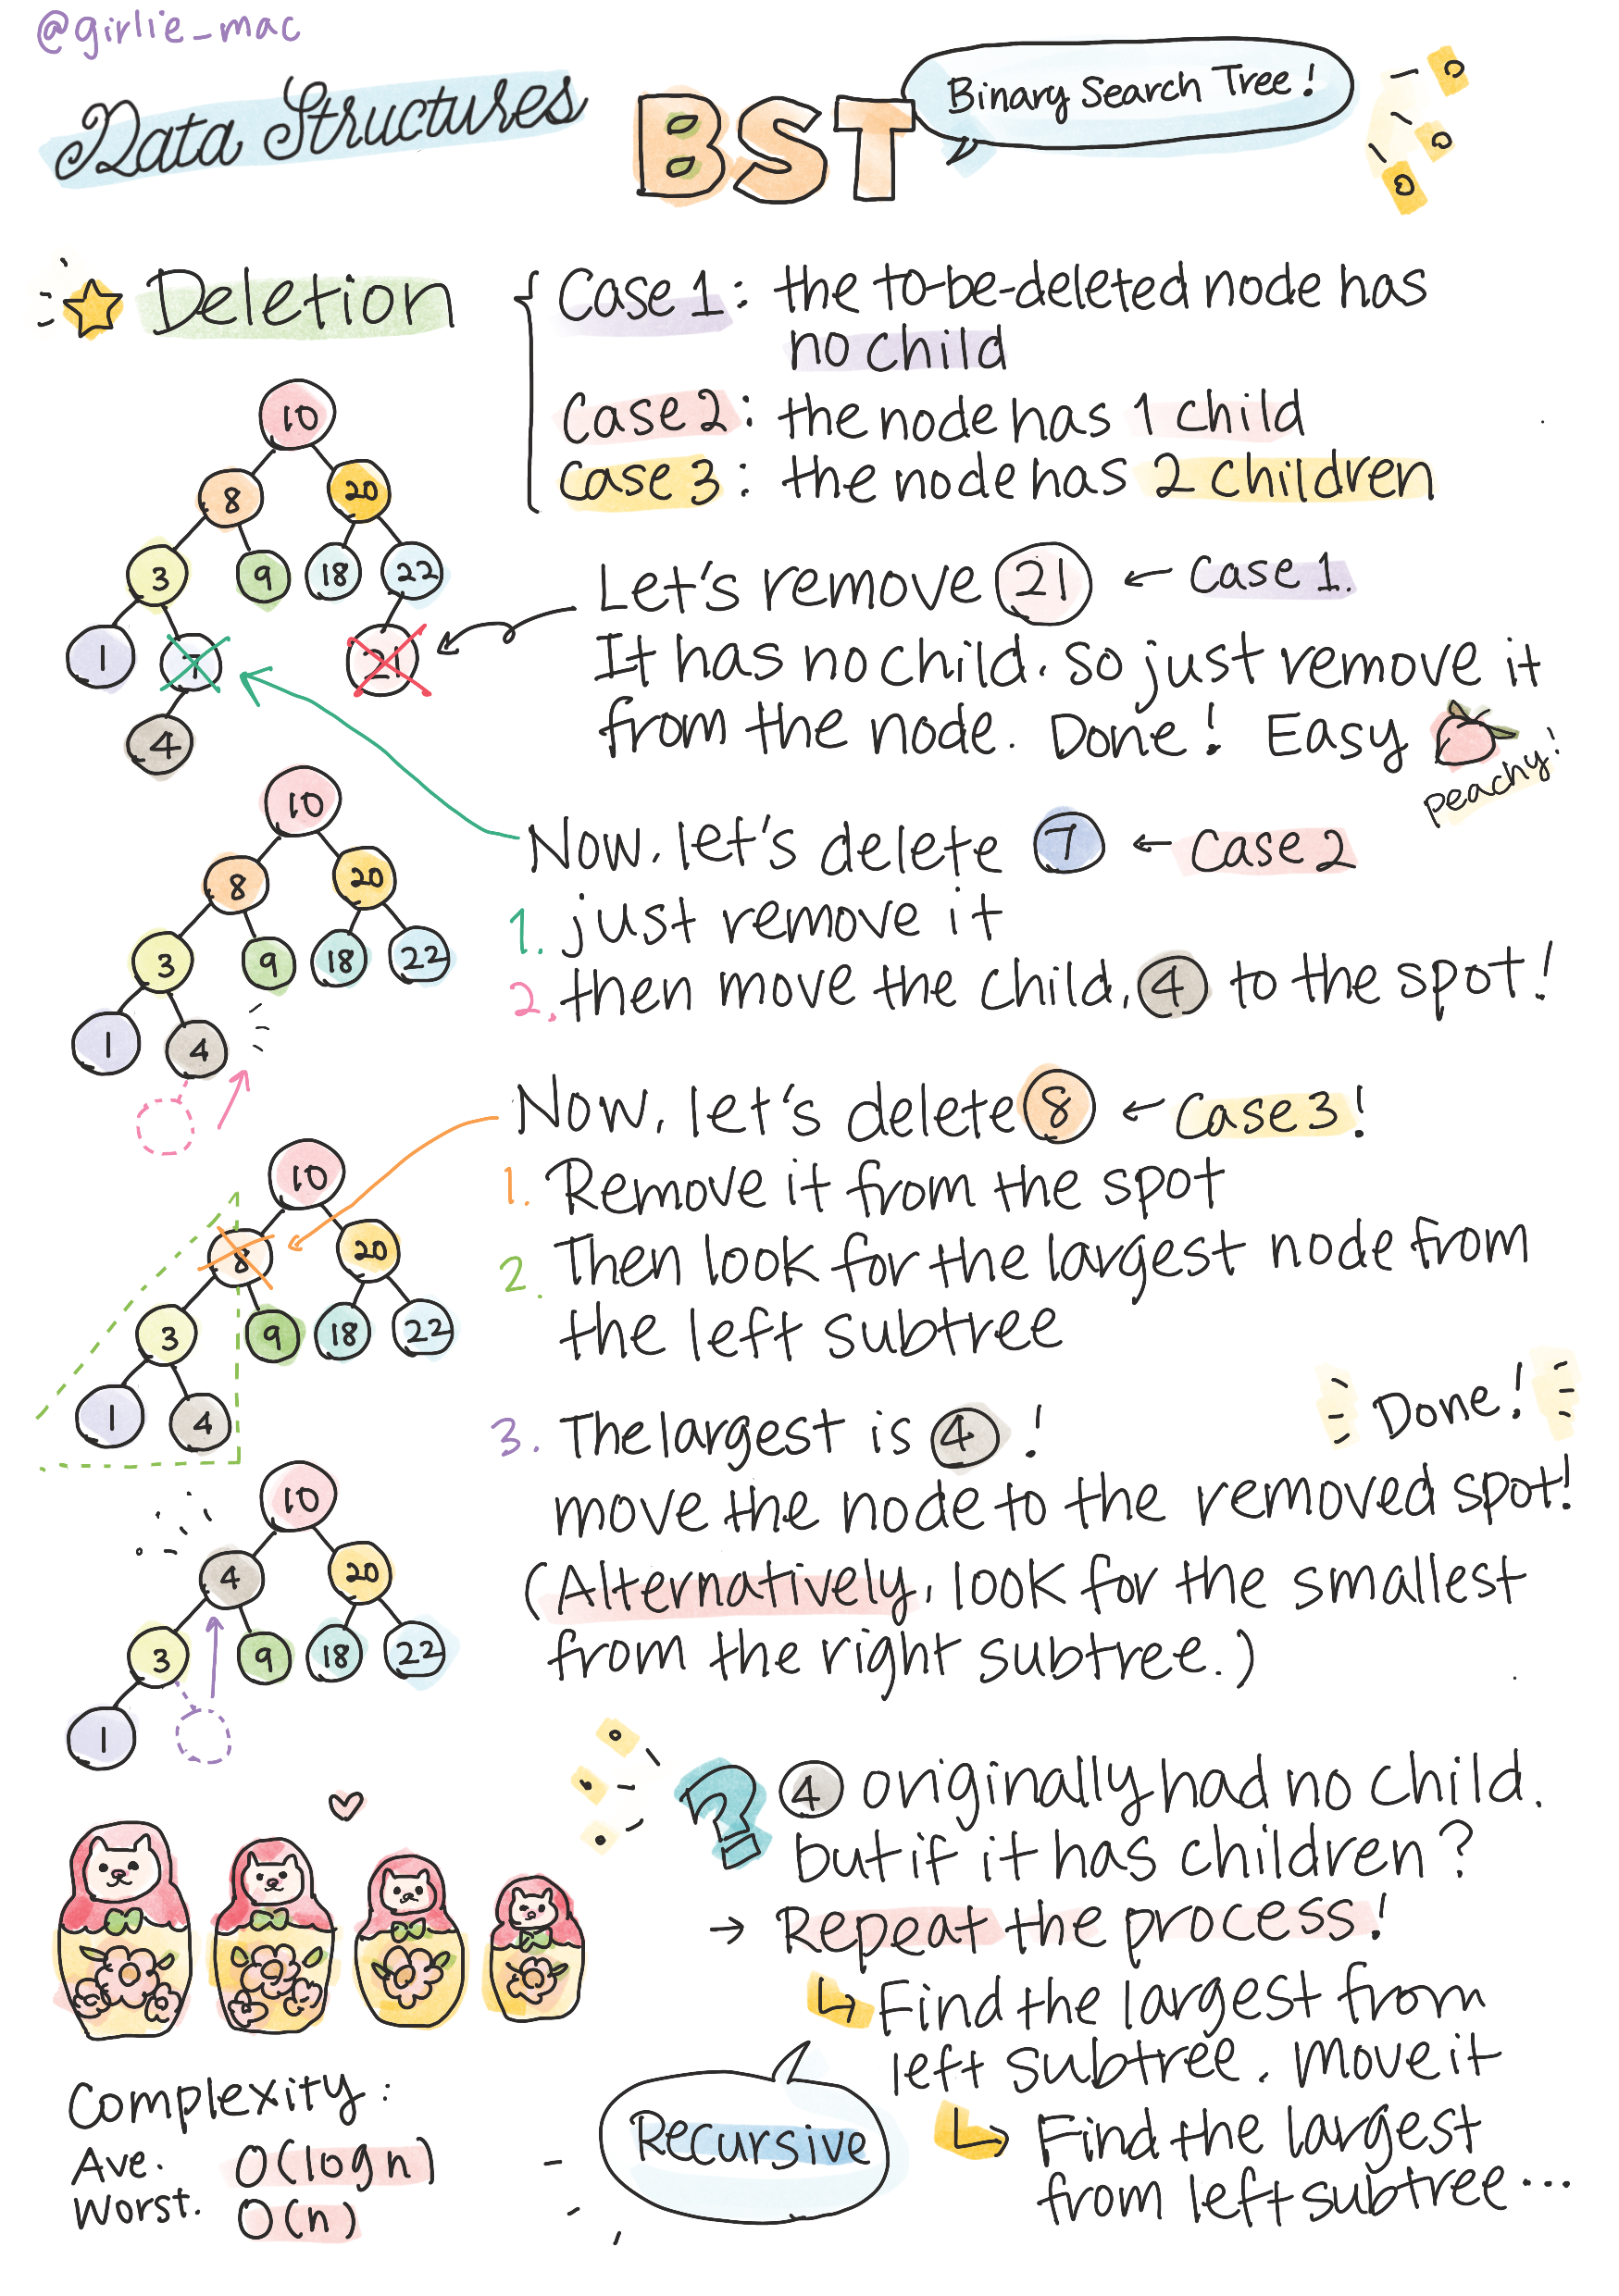 @girlie_mac
Data Structures
BST
Binary Search Tree!
Deletion
Case 1: the to-be-deleted node has
no child
Case 2: the node has 1 child
Case 3: the node has 2 children
10
8 20
3 9 18 22
1 7 21
4
Let's remove 21 ← Case 1.
It has no child. So just remove it
from the node. Done! Easy
peachy!
10
8 20
3 9 18 22
1 4
Now, let's delete 7 ← Case 2
1. just remove it
2. then move the child, 4 to the spot!
10
8 20
3 9 18 22
1 4
Now, let's delete 8 ← Case 3!
1. Remove it from the spot
2. Then look for the largest node from
the left subtree
3. The largest is 4!
Done!
move the node to the removed spot!
(Alternatively, look for the smallest
from the right subtree.)
10
4 20
3 9 18 22
1
? 4 originally had no child.
but if it has children?
→ Repeat the process!
↳ Find the largest from
left subtree. Move it
↳ Find the largest
from left subtree...
Recursive
Complexity:
Ave. O(log n)
Worst. O(n)